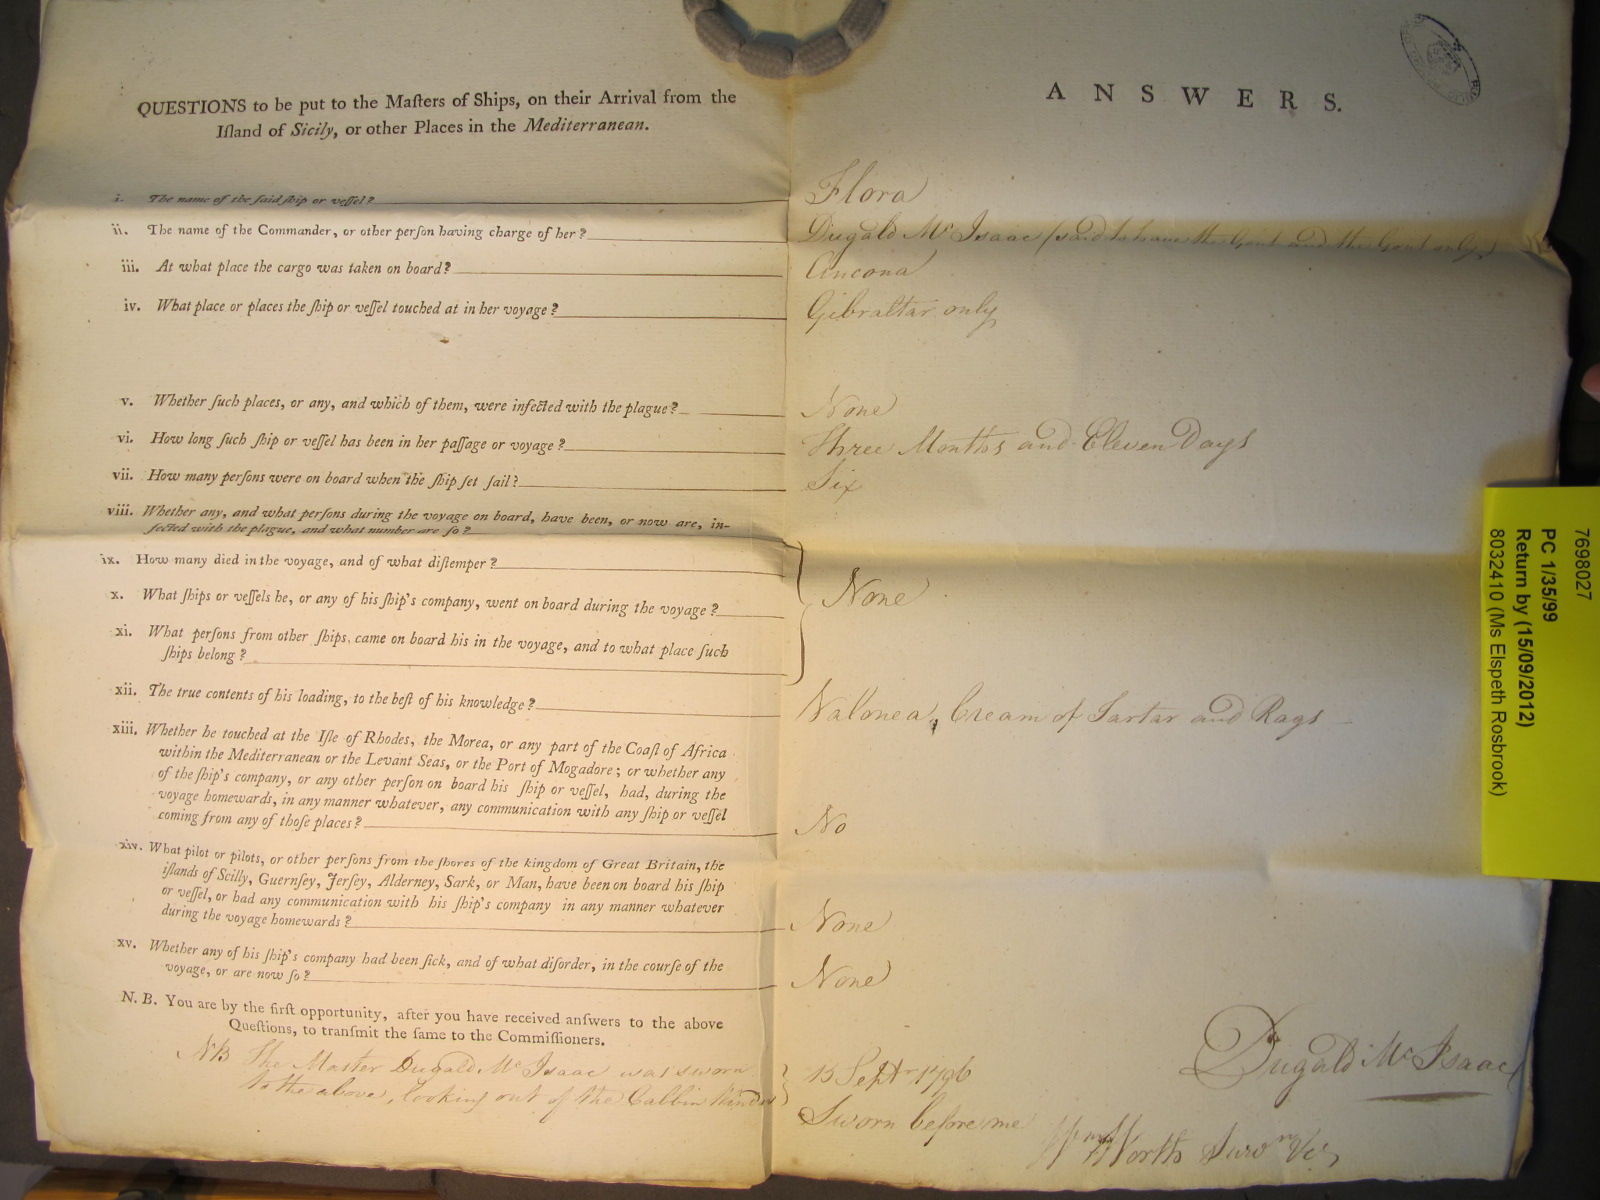 QUESTIONS to be put to the Maſters of Ships, on their Arrival from the
Iſland of Sicily, or other Places in the Mediterranean.
ANSWERS.
i. The name of the ſaid ſhip or veſſel?
Flora
ii. The name of the Commander, or other perſon having charge of her?
Dugald Mc Isaac (said to have the Gout and the Gout only)
iii. At what place the cargo was taken on board?
Ancona
iv. What place or places the ſhip or veſſel touched at in her voyage?
Gibraltar only
v. Whether ſuch places, or any, and which of them, were infected with the plague?
None
vi. How long ſuch ſhip or veſſel has been in her paſſage or voyage?
Three Months and Eleven Days
vii. How many perſons were on board when the ſhip ſet ſail?
Six
viii. Whether any, and what perſons during the voyage on board, have been, or now are, in-
fected with the plague, and what number are ſo?
ix. How many died in the voyage, and of what diſtemper?
x. What ſhips or veſſels he, or any of his ſhip's company, went on board during the voyage?
None
xi. What perſons from other ſhips, came on board his in the voyage, and to what place ſuch
ſhips belong?
xii. The true contents of his loading, to the beſt of his knowledge?
Valonea, Cream of Tartar and Rags
xiii. Whether he touched at the Iſle of Rhodes, the Morea, or any part of the Coaſt of Africa
within the Mediterranean or the Levant Seas, or the Port of Mogadore; or whether any
of the ſhip's company, or any other perſon on board his ſhip or veſſel, had, during the
voyage homewards, in any manner whatever, any communication with any ſhip or veſſel
coming from any of thoſe places?
No
xiv. What pilot or pilots, or other perſons from the ſhores of the kingdom of Great Britain, the
iſlands of Scilly, Guernſey, Jerſey, Alderney, Sark, or Man, have been on board his ſhip
or veſſel, or had any communication with his ſhip's company in any manner whatever
during the voyage homewards?
None
xv. Whether any of his ſhip's company had been ſick, and of what diſorder, in the courſe of the
voyage, or are now ſo?
None
N. B. You are by the firſt opportunity, after you have received anſwers to the above
Queſtions, to tranſmit the ſame to the Commiſſioners.
NB The Master Dugald Mc Isaac was sworn
to the above, looking out of the Cabbin Window
Dugald Mc Isaac
15 Septr 1796
Sworn before me
Wm North
7698027
PC 1/35/99
Return by (15/09/2012)
8032410 (Ms Elspeth Rosbrook)